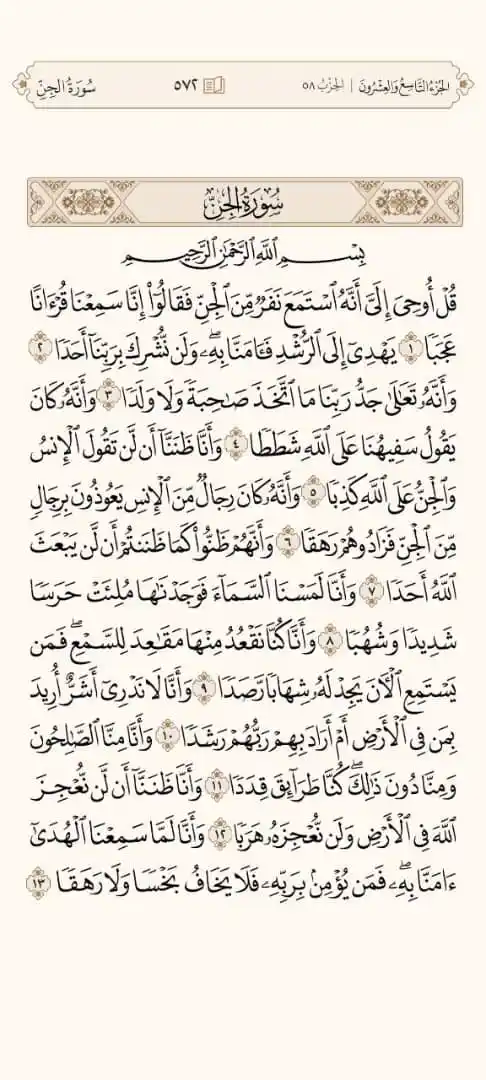 الجُزْءُ التَّاسِعُ وَالعِشْرُونَ | الحِزْبُ ٥٨ ٥٧٢ سُورَةُ الجِنِّ
سُورَةُ الجِنِّ
بِسْمِ ٱللَّهِ ٱلرَّحْمَٰنِ ٱلرَّحِيمِ
قُلْ أُوحِىَ إِلَىَّ أَنَّهُ ٱسْتَمَعَ نَفَرٌ مِّنَ ٱلْجِنِّ فَقَالُوٓا۟ إِنَّا سَمِعْنَا قُرْءَانًا
عَجَبًا ١ يَهْدِىٓ إِلَى ٱلرُّشْدِ فَـَٔامَنَّا بِهِۦۖ وَلَن نُّشْرِكَ بِرَبِّنَآ أَحَدًا ٢
وَأَنَّهُۥ تَعَٰلَىٰ جَدُّ رَبِّنَا مَا ٱتَّخَذَ صَٰحِبَةً وَلَا وَلَدًا ٣ وَأَنَّهُۥ كَانَ
يَقُولُ سَفِيهُنَا عَلَى ٱللَّهِ شَطَطًا ٤ وَأَنَّا ظَنَنَّآ أَن لَّن تَقُولَ ٱلْإِنسُ
وَٱلْجِنُّ عَلَى ٱللَّهِ كَذِبًا ٥ وَأَنَّهُۥ كَانَ رِجَالٌ مِّنَ ٱلْإِنسِ يَعُوذُونَ بِرِجَالٍ
مِّنَ ٱلْجِنِّ فَزَادُوهُمْ رَهَقًا ٦ وَأَنَّهُمْ ظَنُّوا۟ كَمَا ظَنَنتُمْ أَن لَّن يَبْعَثَ
ٱللَّهُ أَحَدًا ٧ وَأَنَّا لَمَسْنَا ٱلسَّمَآءَ فَوَجَدْنَٰهَا مُلِئَتْ حَرَسًا
شَدِيدًا وَشُهُبًا ٨ وَأَنَّا كُنَّا نَقْعُدُ مِنْهَا مَقَٰعِدَ لِلسَّمْعِۖ فَمَن
يَسْتَمِعِ ٱلْـَٔانَ يَجِدْ لَهُۥ شِهَابًا رَّصَدًا ٩ وَأَنَّا لَا نَدْرِىٓ أَشَرٌّ أُرِيدَ
بِمَن فِى ٱلْأَرْضِ أَمْ أَرَادَ بِهِمْ رَبُّهُمْ رَشَدًا ١٠ وَأَنَّا مِنَّا ٱلصَّٰلِحُونَ
وَمِنَّا دُونَ ذَٰلِكَۖ كُنَّا طَرَآئِقَ قِدَدًا ١١ وَأَنَّا ظَنَنَّآ أَن لَّن نُّعْجِزَ
ٱللَّهَ فِى ٱلْأَرْضِ وَلَن نُّعْجِزَهُۥ هَرَبًا ١٢ وَأَنَّا لَمَّا سَمِعْنَا ٱلْهُدَىٰٓ
ءَامَنَّا بِهِۦۖ فَمَن يُؤْمِنۢ بِرَبِّهِۦ فَلَا يَخَافُ بَخْسًا وَلَا رَهَقًا ١٣